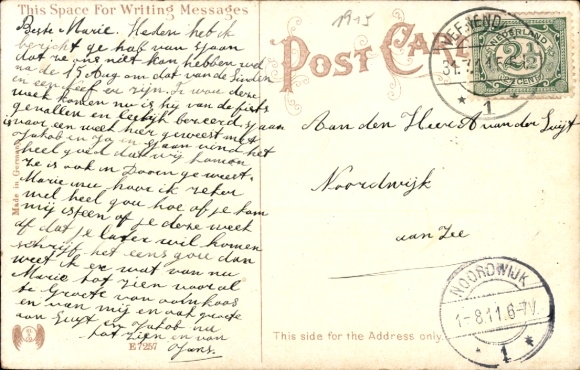 This Space For Writing Messages
Beste Marie. Heden heb ik
bericht ge had van Jaan
dat ze ons niet kan hebben wel
na de 15 Aug om dat van de Linden
en een feef er zijn. Je wou deze
week komen nu is hij van de fiets
gevallen en bezeerd Jaan
is voor een week hier geweest met
Jakob en Jo en Jaan vind het
heel goed dat wij komen
Ze is ook in Doorn geweest.
Marie nu hoor ik zeker
wel heel gou hoe of je kom
mij steen of je deze week
of dat je later wil komen
schrijft het eens gou dan
weet ik er wat van nu
Marie tot zien vooral
te Groete van oom koos
en van mij en ook groete
aan Luyt en Jakob nu
tot zien en van
Jans.
Made in Germany
E7257
1915
POST CARD
NEDERLAND
2½
CENT
31.7.
1
Aan den Heer A van der Luijt
Noordwijk
aan Zee
NOORDWIJK
1-8.11.6-7V.
1
This side for the Address only.